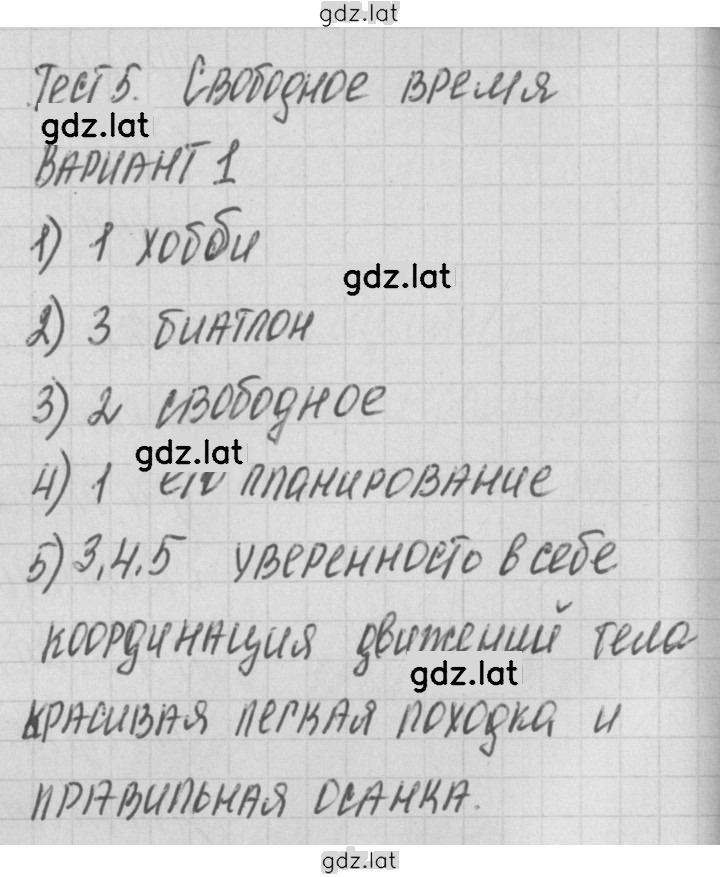 gdz.lat
Тест 5. Свободное время
gdz.lat
ВАРИАНТ 1
1) 1 хобби
gdz.lat
2) 3 биатлон
3) 2 свободное
gdz.lat
4) 1 планирование
5) 3,4,5 уверенность в себе
координация движений тела
gdz.lat
красивая легкая походка и
правильная осанка.
gdz.lat